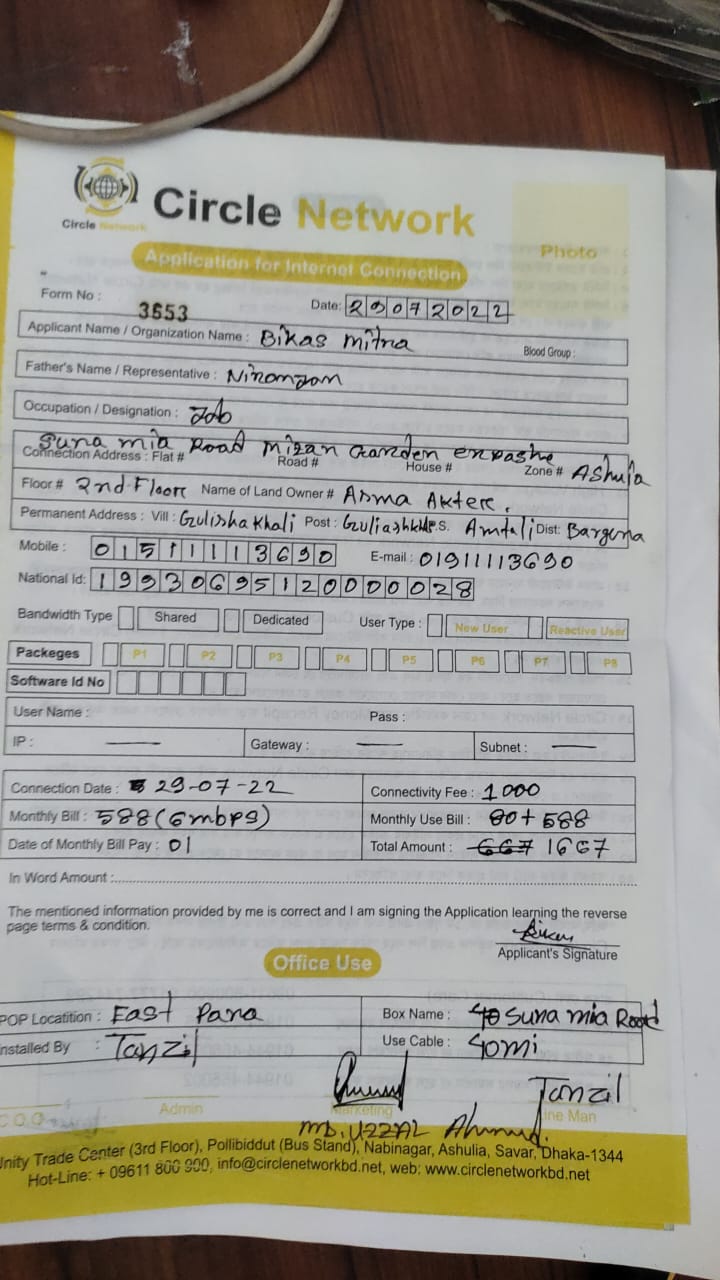 Circle Network
Circle Network
Photo
Application for Internet Connection
Form No : 3653
Date: 29072022
Applicant Name / Organization Name : Bikas mitra
Blood Group :
Father's Name / Representative : Niromzan
Occupation / Designation : Job
Suna mia Road mizan Garden enpashe
Connection Address : Flat # Road # House # Zone # Ashuja
Floor # 2nd Floor Name of Land Owner # Asma Akter.
Permanent Address : Vill : Gulisha Khali Post : P.S. Amtali Dist: Bargona
Mobile : 01511113690 E-mail : 01911113690
National Id: 19930695120000028
Bandwidth Type Shared Dedicated User Type : New User Reactive User
Packeges P1 P2 P3 P4 P5 P6 P7 P8
Software Id No
User Name : Pass :
IP : Gateway : Subnet :
Connection Date : 29-07-22 Connectivity Fee : 1000
Monthly Bill : 588 (6mbps) Monthly Use Bill : 80+588
Date of Monthly Bill Pay : 01 Total Amount : 667 1667
In Word Amount :
The mentioned information provided by me is correct and I am signing the Application learning the reverse
page terms & condition.
Applicant's Signature
Office Use
POP Locatition : East Para Box Name : Suna mia Road
Installed By : Tanzil Use Cable : 40mi
Tanzil
C O O Admin Marketing Line Man
MD. UZZAL Ahmed.
Unity Trade Center (3rd Floor), Pollibiddut (Bus Stand), Nabinagar, Ashulia, Savar, Dhaka-1344
Hot-Line: + 09611 800 900, info@circlenetworkbd.net, web: www.circlenetworkbd.net